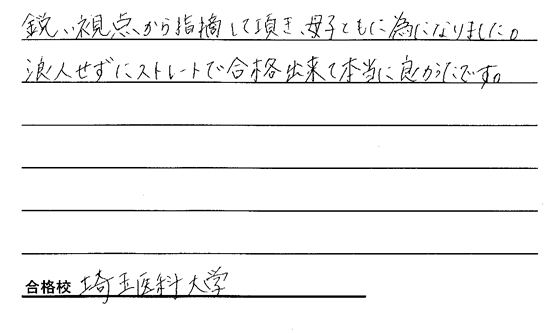 鋭い視点から指摘して頂き、母子ともに為になりました。
浪人せずにストレートで合格出来て本当に良かったです。
合格校 埼玉医科大学